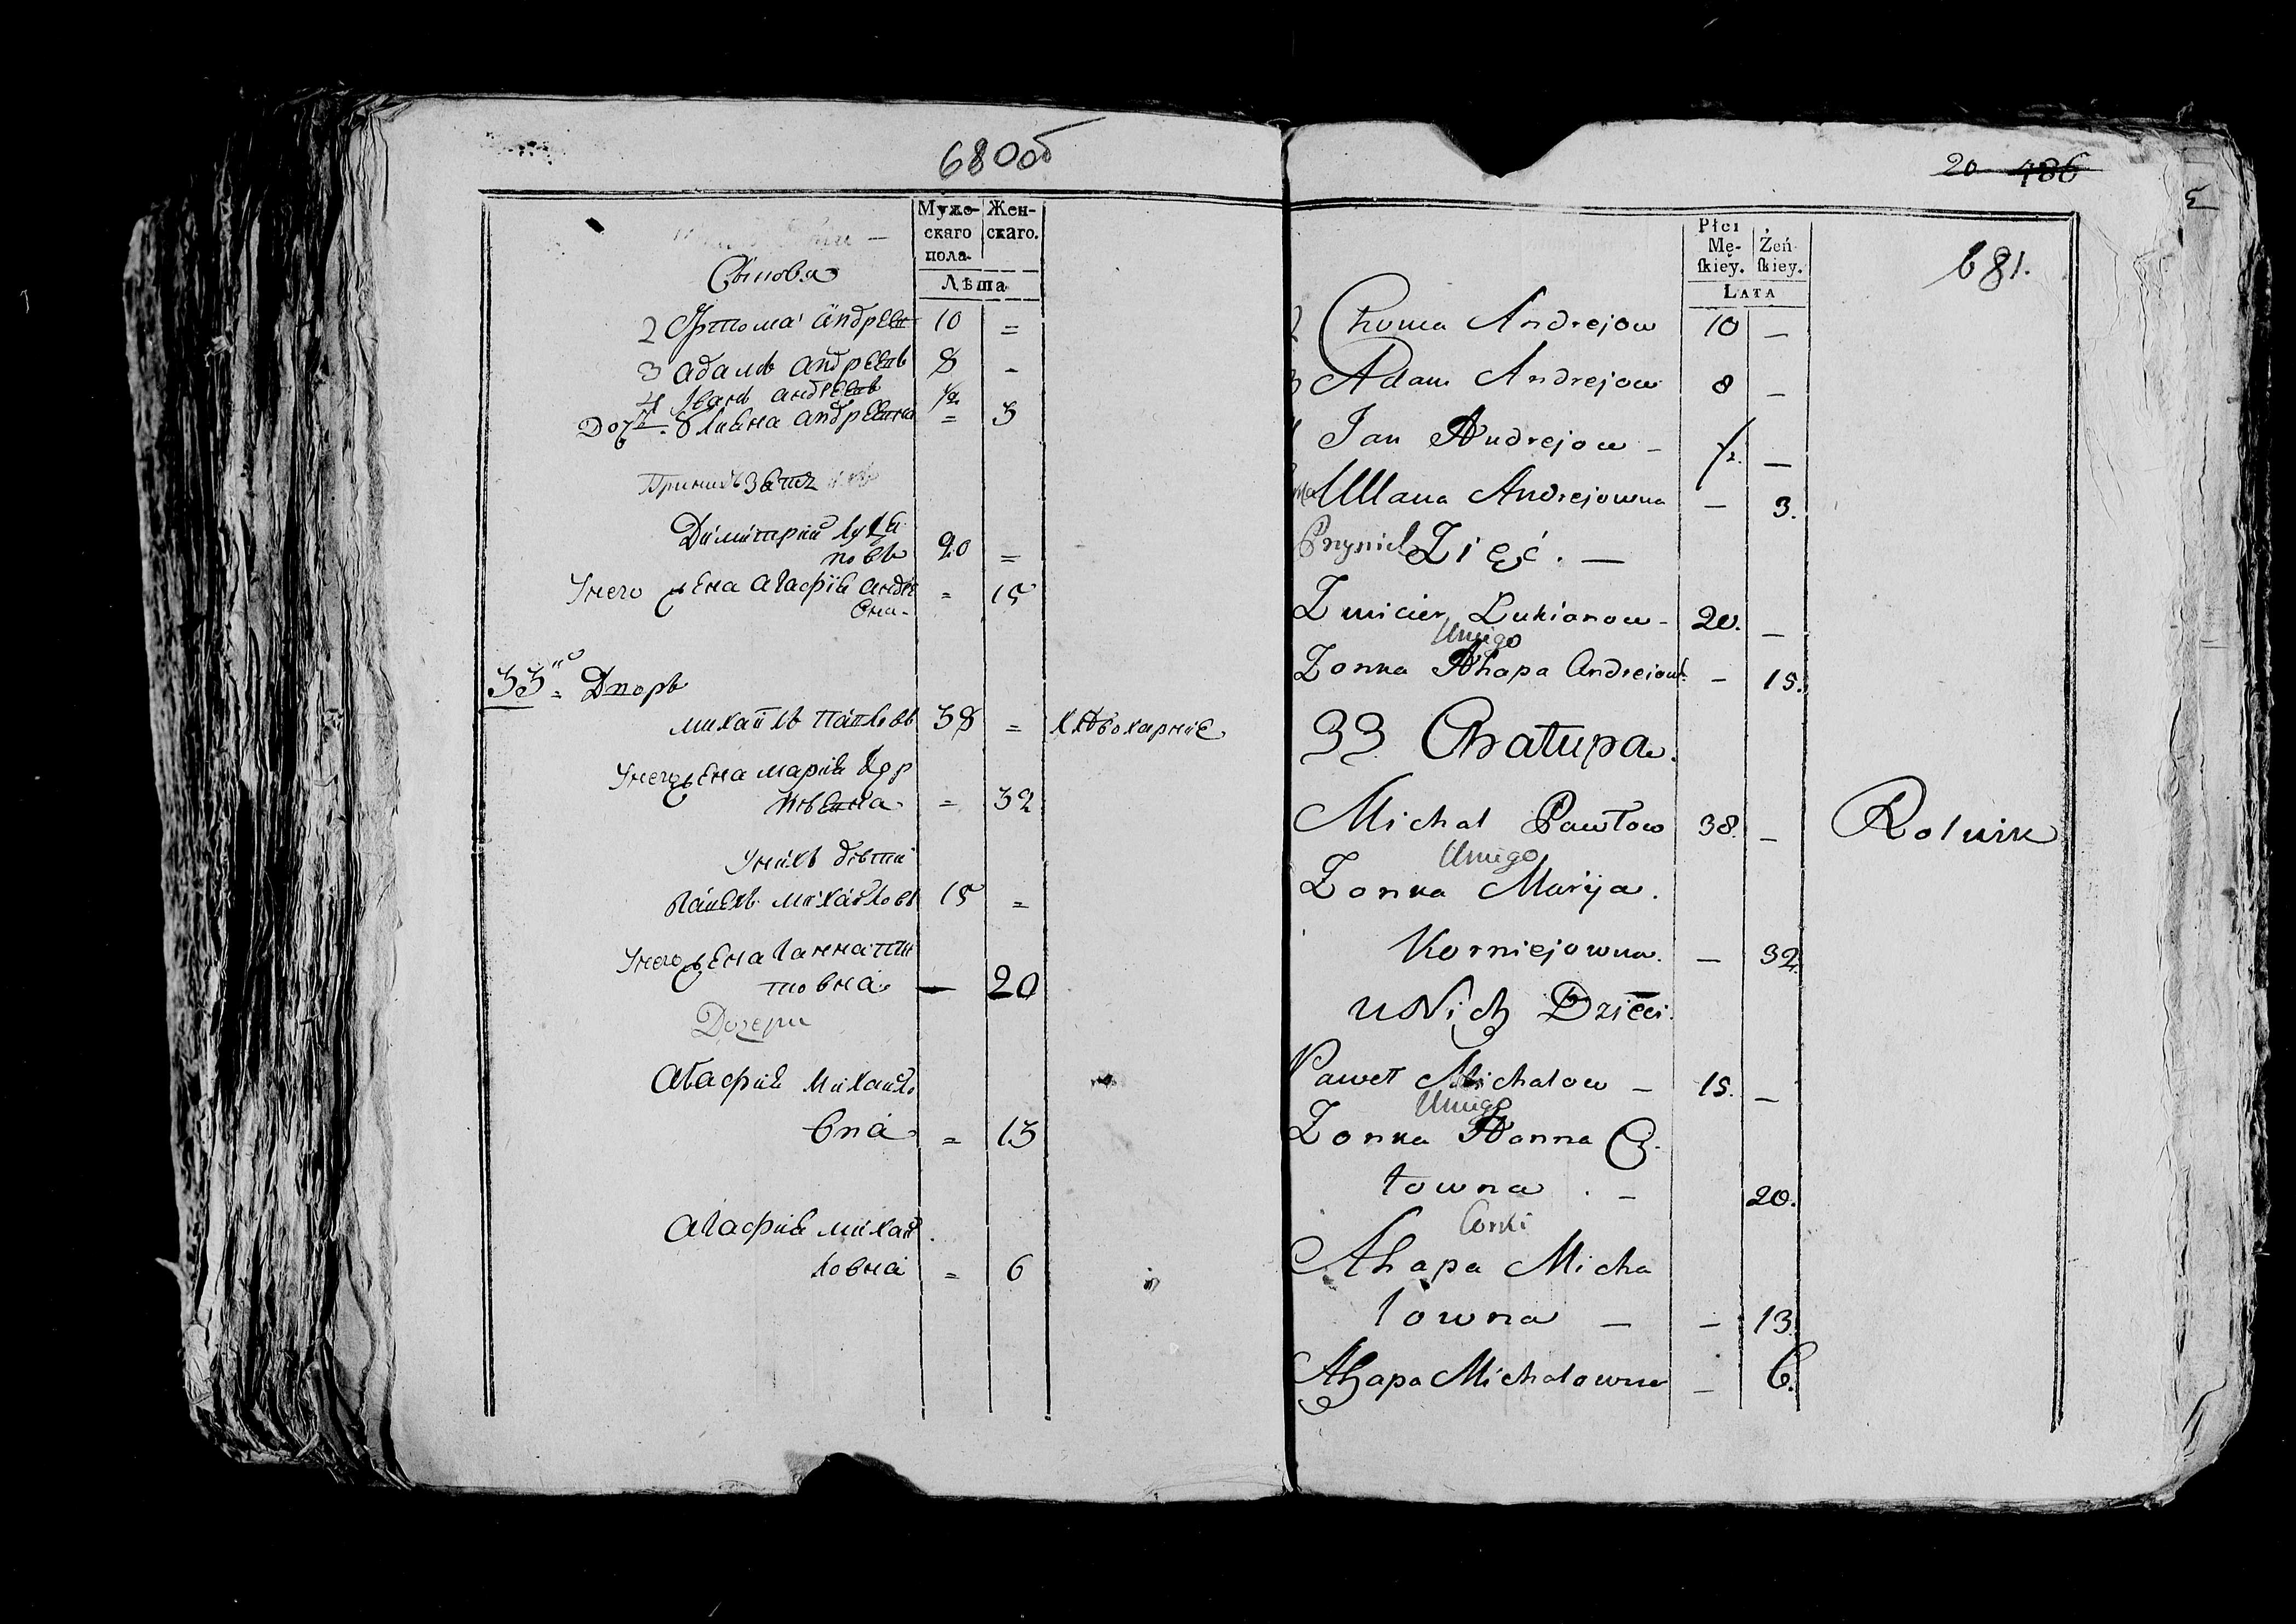 680об
Мужескаго пола
Женскаго.
Лѣта
Сынова
2 Фтома Андреев 10 =
3 Адамъ Андреевъ 8 -
4 Іванъ Андреевъ 1/2
Дочь Улиена Андреевна = 3
зять
Димитрий Лукя
новъ 20 =
Унего жена Агафия Андре
вна = 15
33 Дворъ
Михайлъ Павловъ 38 =
Унего жена Мария Кор
нѣевна = 32
Унихъ дѣти
Павелъ Михайловъ 15 =
Унего жена Ганна Ти
товна — 20
Дочери
Агафия Михайло
вна = 13
Агафия Михай
ловна = 6
20 486
681.
Płci Męskiey.
Żeńskiey.
Lata
2 Choma Andrejow 10 —
3 Adam Andrejow 8 —
Jan Andrejow — 1/2. —
Ullana Andrejowna — 3.
Prynial Zięć. —
Zmicier Łukianow - 20. —
Unięgo
Zonka Ahapa Andreiow — 15.
33 Chatupa.
Michal Pawłow 38. — Rolnik
Unięgo
Zonka Marija.
Korniejowna. — 32.
u Nich Dzieci.
Paweł Michalow — 15. —
Unięgo
Zonka Hanna
towna . — 20.
Corki
Ahapa Micha
lowna — — 13.
Ahapa Michalowna — 6.